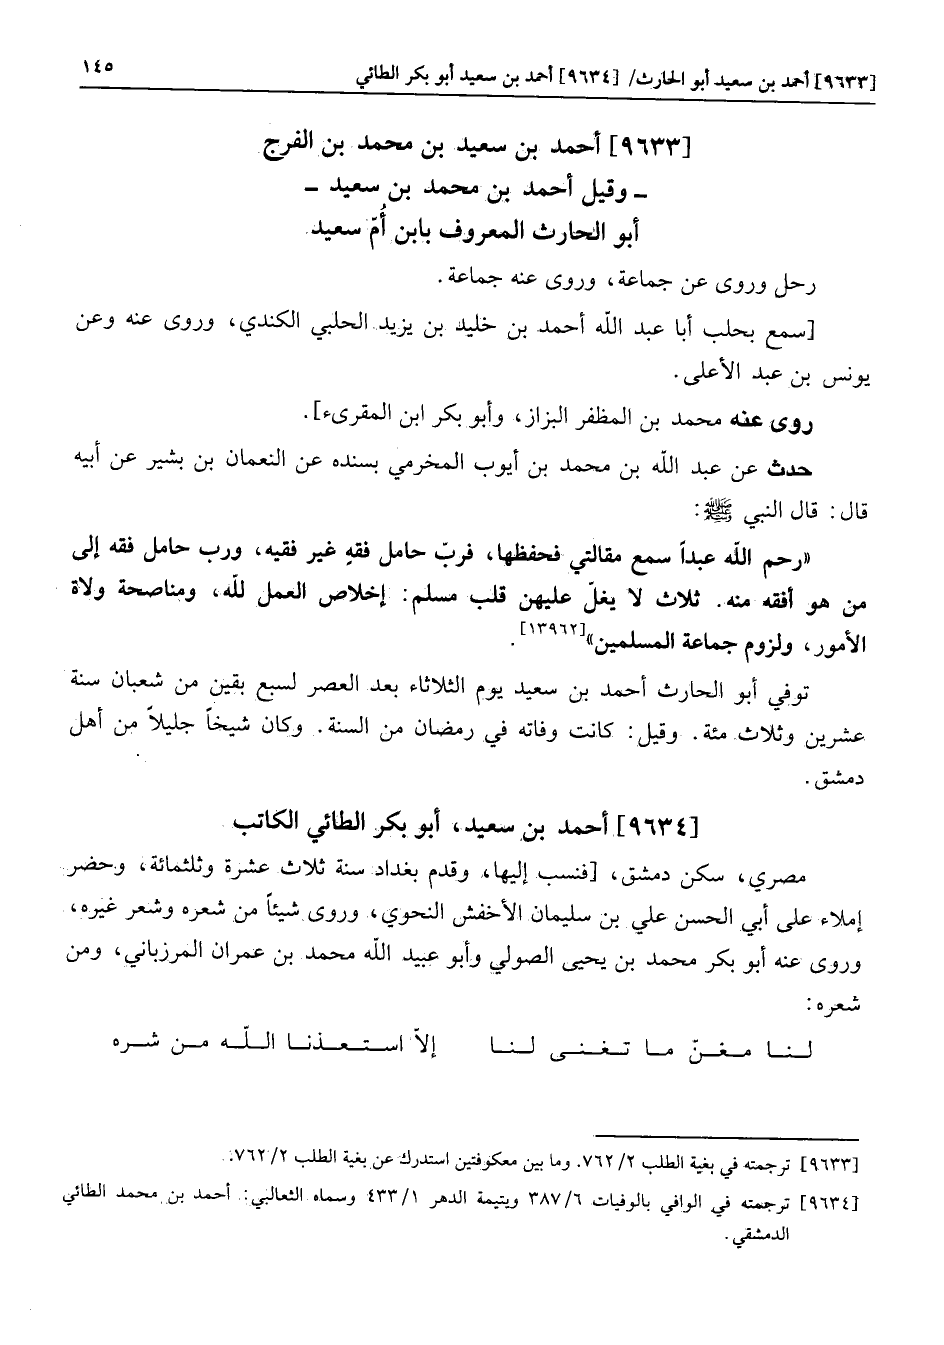 [٩٦٣٣] أحمد بن سعيد أبو الحارث/ [٩٦٣٤] أحمد بن سعيد أبو بكر الطائي
١٤٥
[٩٦٣٣] أحمد بن سعيد بن محمد بن الفرج
ـ وقيل أحمد بن محمد بن سعيد ـ
أبو الحارث المعروف بابن أُمّ سعيد
رحل وروى عن جماعة، وروى عنه جماعة.
[سمع بحلب أبا عبد الله أحمد بن خليد بن يزيد الحلبي الكندي، وروى عنه وعن
يونس بن عبد الأعلى.
روى عنه محمد بن المظفر البزاز، وأبو بكر ابن المقرىء].
حدث عن عبد الله بن محمد بن أيوب المخرمي بسنده عن النعمان بن بشير عن أبيه
قال: قال النبي ﷺ:
«رحم الله عبداً سمع مقالتي فحفظها، فربّ حامل فقهٍ غير فقيه، ورب حامل فقه إلى
من هو أفقه منه. ثلاث لا يغلّ عليهن قلب مسلم: إخلاص العمل لله، ومناصحة ولاة
الأمور، ولزوم جماعة المسلمين»[١٣٩٦٢].
توفي أبو الحارث أحمد بن سعيد يوم الثلاثاء بعد العصر لسبع بقين من شعبان سنة
عشرين وثلاث مئة. وقيل: كانت وفاته في رمضان من السنة. وكان شيخاً جليلاً من أهل
دمشق.
[٩٦٣٤] أحمد بن سعيد، أبو بكر الطائي الكاتب
مصري، سكن دمشق، [فنسب إليها، وقدم بغداد سنة ثلاث عشرة وثلثمائة، وحضر
إملاء على أبي الحسن علي بن سليمان الأخفش النحوي، وروى شيئاً من شعره وشعر غيره،
وروى عنه أبو بكر محمد بن يحيى الصولي وأبو عبيد الله محمد بن عمران المرزباني، ومن
شعره:
لنا مغنّ ما تغنى لنا إلاّ استعذنا اللّه من شره
[٩٦٣٣] ترجمته في بغية الطلب ٢/ ٧٦٢. وما بين معكوفتين استدرك عن بغية الطلب ٢/ ٧٦٢.
[٩٦٣٤] ترجمته في الوافي بالوفيات ٦/ ٣٨٧ ويتيمة الدهر ١/ ٤٣٣ وسماه الثعالبي: أحمد بن محمد الطائي
الدمشقي.